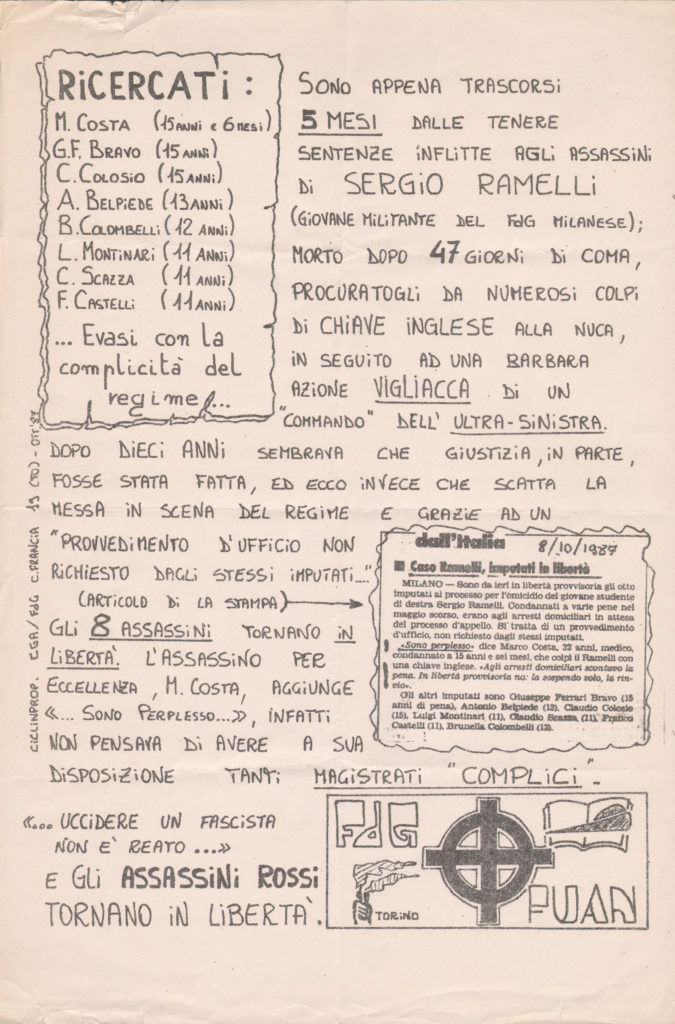 RICERCATI :
M. COSTA (15 ANNI E 6 MESI)
G.F. BRAVO (15 ANNI)
C. COLOSIO (15 ANNI)
A. BELPIEDE (13 ANNI)
B. COLOMBELLI (12 ANNI)
L. MONTINARI (11 ANNI)
C. SCAZZA (11 ANNI)
F. CASTELLI (11 ANNI)
... Evasi con la
complicità del
regime...
SONO APPENA TRASCORSI
5 MESI DALLE TENERE
SENTENZE INFLITTE AGLI ASSASSINI
DI SERGIO RAMELLI
(GIOVANE MILITANTE DEL FdG MILANESE);
MORTO DOPO 47 GIORNI DI COMA,
PROCURATOGLI DA NUMEROSI COLPI
DI CHIAVE INGLESE ALLA NUCA,
IN SEGUITO AD UNA BARBARA
AZIONE VIGLIACCA DI UN
"COMMANDO" DELL' ULTRA-SINISTRA.
DOPO DIECI ANNI SEMBRAVA CHE GIUSTIZIA, IN PARTE,
FOSSE STATA FATTA, ED ECCO INVECE CHE SCATTA LA
MESSA IN SCENA DEL REGIME E GRAZIE AD UN
"PROVVEDIMENTO D'UFFICIO NON
RICHIESTO DAGLI STESSI IMPUTATI..."
(ARTICOLO DI LA STAMPA)
GLI 8 ASSASSINI TORNANO IN
LIBERTÀ. L'ASSASSINO PER
ECCELLENZA, M. COSTA, AGGIUNGE
«... SONO PERPLESSO...», INFATTI
NON PENSAVA DI AVERE A SUA
DISPOSIZIONE TANTI MAGISTRATI "COMPLICI".
dall'Italia 8/10/1987
Caso Ramelli, imputati in libertà
MILANO — Sono da ieri in libertà provvisoria gli otto
imputati al processo per l'omicidio del giovane studente
di destra Sergio Ramelli. Condannati a varie pene nel
maggio scorso, erano agli arresti domiciliari in attesa
del processo d'appello. Si tratta di un provvedimento
d'ufficio, non richiesto dagli stessi imputati.
«Sono perplesso» dice Marco Costa, 32 anni, medico,
condannato a 15 anni e sei mesi, che colpì il Ramelli con
una chiave inglese. «Agli arresti domiciliari scontavo la
pena. In libertà provvisoria no: la sospendo solo, la rin-
vio».
Gli altri imputati sono Giuseppe Ferrari Bravo (15
anni di pena), Antonio Belpiede (13), Claudio Colosio
(15), Luigi Montinari (11), Claudio Scazza (11), Franco
Castelli (11), Brunella Colombelli (12).
«... UCCIDERE UN FASCISTA
NON E' REATO ...»
E GLI ASSASSINI ROSSI
TORNANO IN LIBERTÀ.
FdG
TORINO
FUAN
CICLINPROP. CGA/FdG C. FRANCIA 19 (TO) - OTT. '87